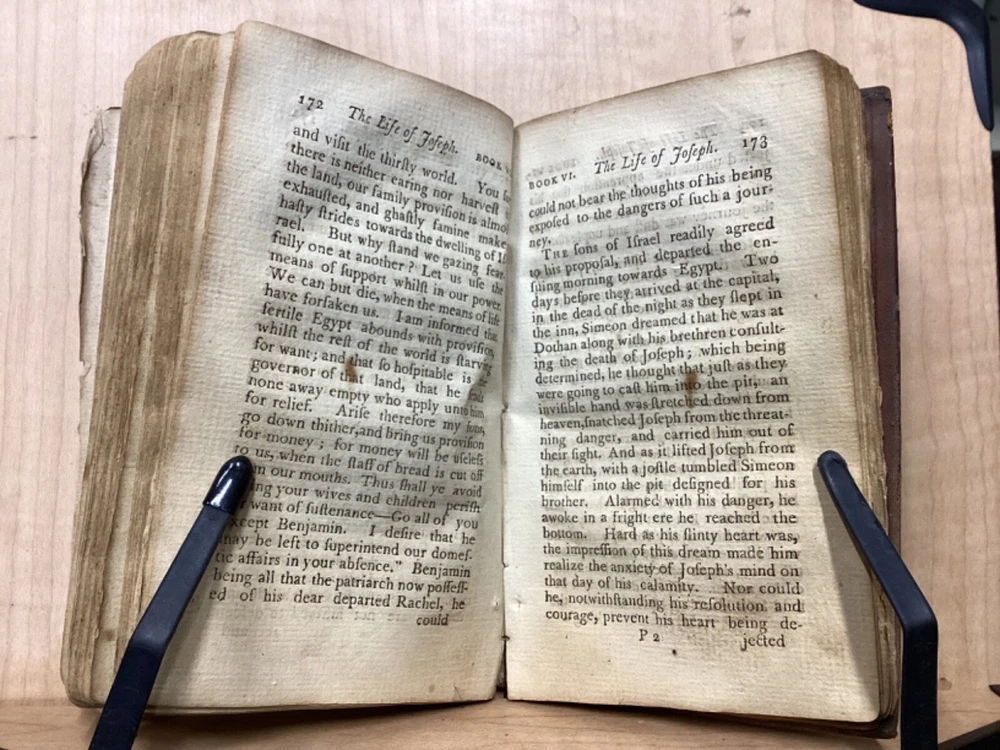 172 The Life of Joseph. BOOK
and viſit the thirſty world. You
there is neither earing nor harveſt
the land, our family proviſion is almo
exhauſted, and ghaſtly famine make
haſty ſtrides towards the dwelling of Iſ
rael. But why ſtand we gazing fear
fully one at another? Let us uſe the
means of ſupport whilſt in our power.
We can but die, when the means of life
have forſaken us. I am informed that
fertile Egypt abounds with proviſion,
whilſt the reſt of the world is ſtarving
for want; and that ſo hoſpitable is
governor of that land, that he ſends
none away empty who apply unto him
for relief. Ariſe therefore my ſons,
go down thither, and bring us proviſion
for money; for money will be uſeleſs
to us, when the ſtaff of bread is cut off
m our mouths. Thus ſhall ye avoid
ing your wives and children periſh
want of ſuſtenance—Go all of you
xcept Benjamin. I deſire that he
may be left to ſuperintend our domeſ-
tic affairs in your abſence." Benjamin
being all that the patriarch now poſſeſſ-
ed of his dear departed Rachel, he
could
BOOK VI. The Life of Joſeph. 173
could not bear the thoughts of his being
expoſed to the dangers of ſuch a jour-
ney.
THE ſons of Iſrael readily agreed
to his propoſal, and departed the en-
ſuing morning towards Egypt. Two
days before they arrived at the capital,
in the dead of the night as they ſlept in
the inn, Simeon dreamed that he was at
Dothan along with his brethren conſult-
ing the death of Joſeph; which being
determined, he thought that juſt as they
were going to caſt him into the pit, an
inviſible hand was ſtretched down from
heaven, ſnatched Joſeph from the threat-
ning danger, and carried him out of
their ſight. And as it lifted Joſeph from
the earth, with a joſtle tumbled Simeon
himſelf into the pit deſigned for his
brother. Alarmed with his danger, he
awoke in a fright ere he reached the
bottom. Hard as his flinty heart was,
the impreſſion of this dream made him
realize the anxiety of Joſeph's mind on
that day of his calamity. Nor could
he, notwithſtanding his reſolution and
courage, prevent his heart being de-
P 2 jected